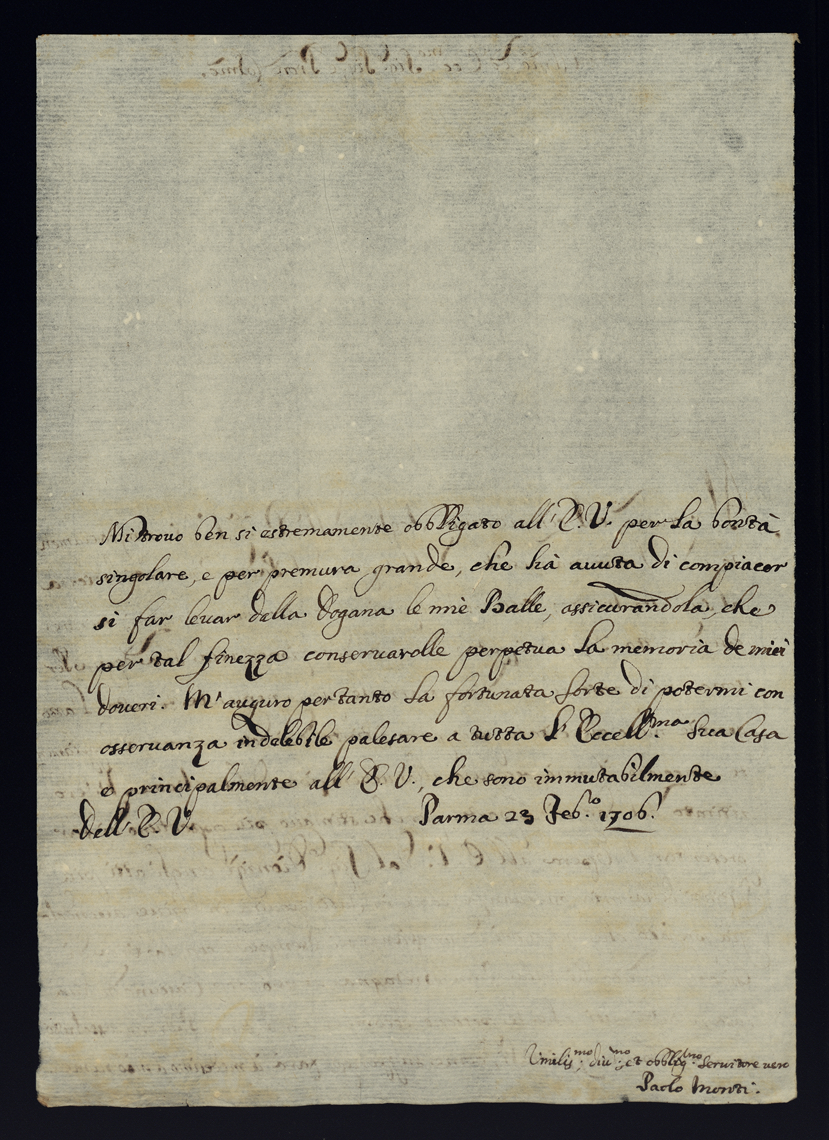 Mi trovo ben sì estremamente obbligato all' E. V. per la bontà
singolare, e per premura grande, che hà avuta di compiacer
si far levar dalla Dogana le miè Balle, assicurandola, che
per tal finezza conservarolle perpetua la memoria de miei
doveri. M' auguro pertanto la fortunata sorte di potermi con
osservanza indelebile palesare a tutta l' Eccell.ma Sua Casa
e principalmente all' E. V., che sono immutabilmente
Dell' E. V. Parma 23 Feb.o 1706.
Umilis.mo; div.mo; et obblig.mo Servitore vero
Paolo Monti.